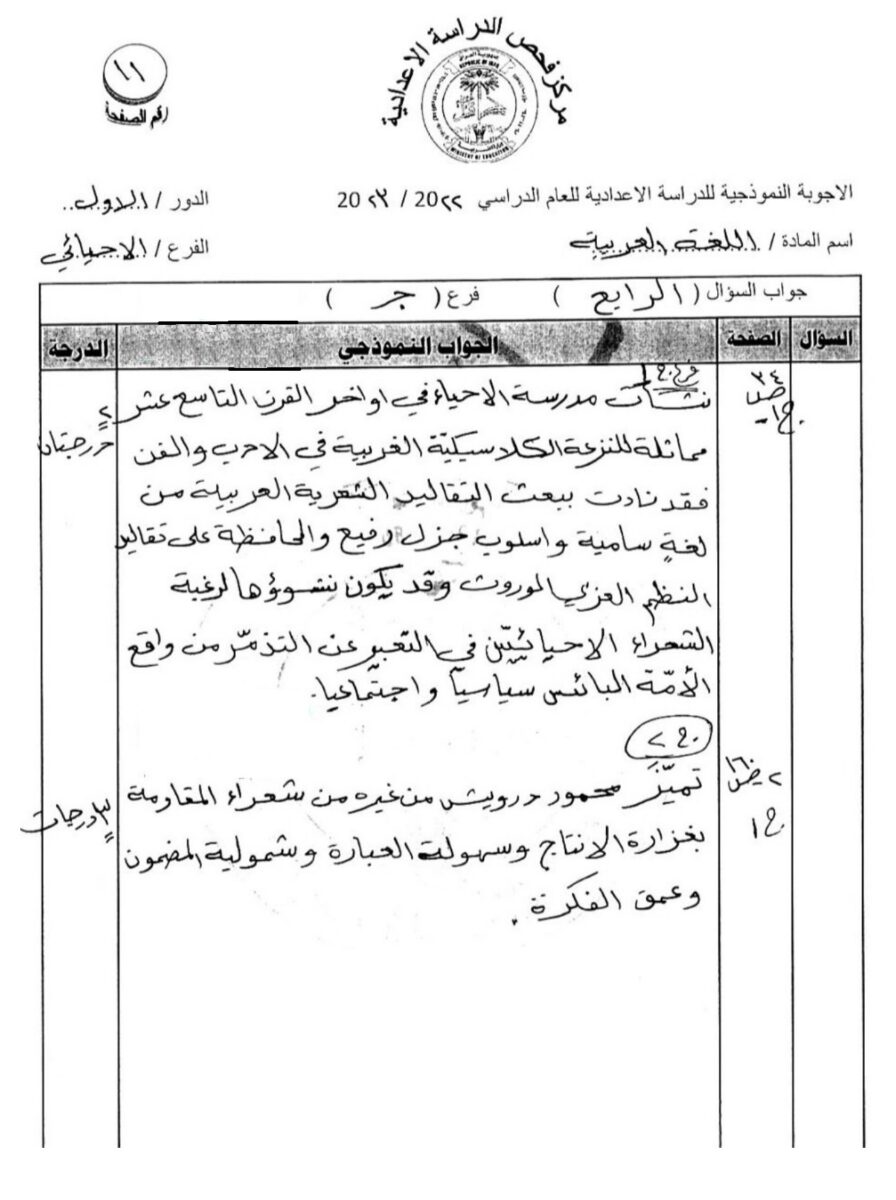 مركز فحص الدراسة الاعدادية
REPUBLIC OF IRAQ
MINISTRY OF EDUCATION
١١
رقم الصفحة
الاجوبة النموذجية للدراسة الاعدادية للعام الدراسي 20٢٢ / 20٢٣
الدور / الاول
اسم المادة / اللغة العربية
الفرع / الاحيائي
جواب السؤال ( الرابع ) فرع ( جـ )
السؤال الصفحة الجواب النموذجي الدرجة
فرع ج١
ص ٣٤
ج١
نشأت مدرسة الاحياء في اواخر القرن التاسع عشر
٢ درجتان
مماثلة للنزعة الكلاسيكيّة الغربية في الادب والفن
فقد نادت ببعث التقاليد الشعرية العربية من
لغةٍ سامية واسلوب جزل رفيع والمحافظة على تقاليد
النظم العربي الموروث وقد يكون نشوؤها لرغبة
الشعراء الاحيائيّين في التعبير عن التذمّر من واقع
الأمّة البائس سياسياً واجتماعيا.
ج٢
ص ١٦٠
ج١
تميّز محمود درويش من غيره من شعراء المقاومة
٣ درجات
بغزارة الانتاج وسهولة العبارة وشمولية المضمون
وعمق الفكرة .